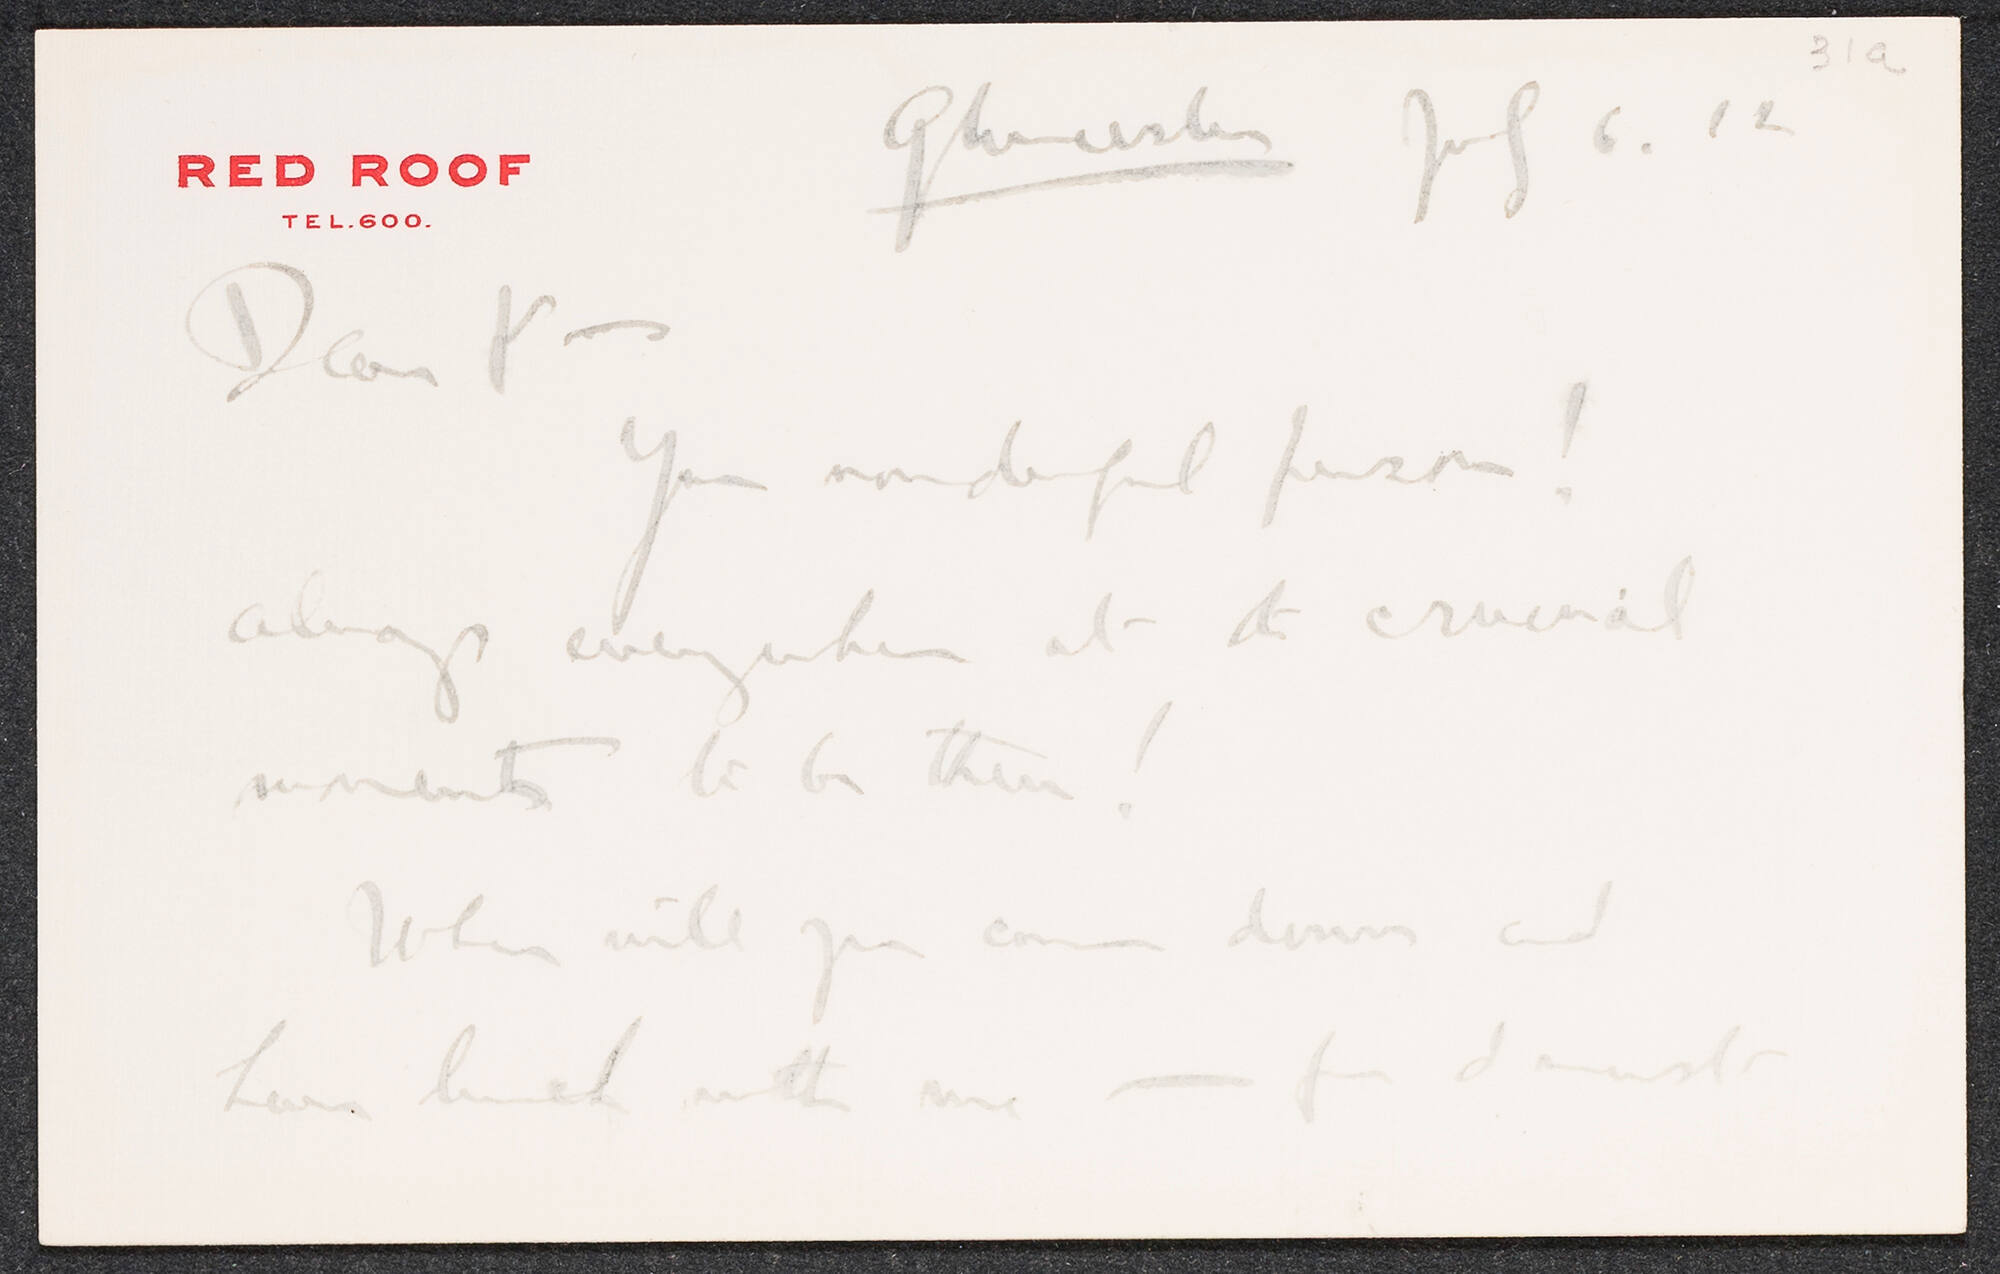 31a
Gloucester July 6. 12
RED ROOF
TEL.600.
Dear Y—
You wonderful person!
always everywhere at the crucial
moments to be there!
When will you come down and
have lunch with me — for I must